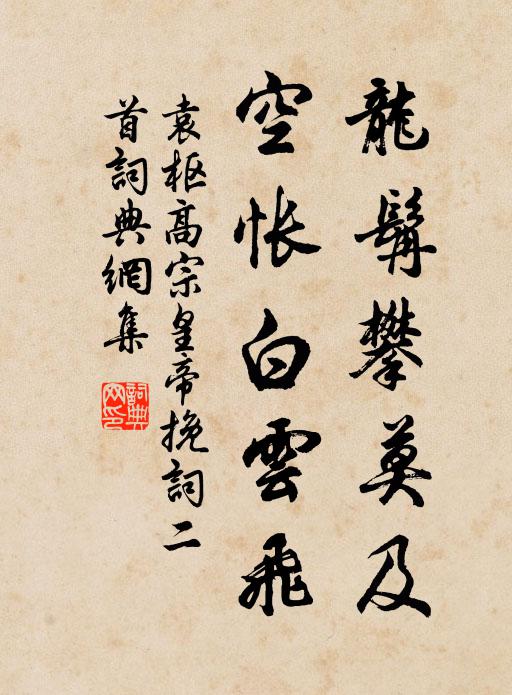 龍髯攀莫及
空悵白雲飛
袁枢高宗皇帝挽詞二
首詞典網集
詞典
网印